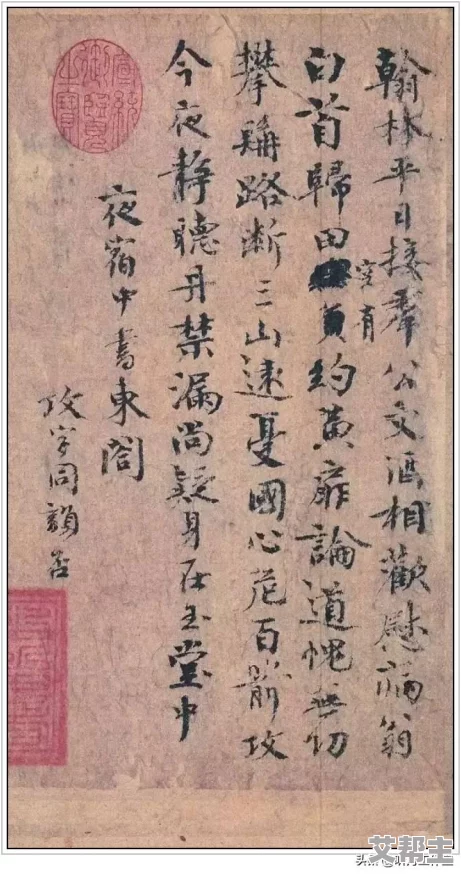 翰林平日接羣公文酒相歡慰病翁
白首歸田空有約黃扉論道愧無功
攀髯路斷三山遠憂國心危百箭攻
今夜靜聽丹禁漏尚疑身在玉堂中
夜宿中書東閤
攻字同韻否
宣統御覽之寶
艾帮主